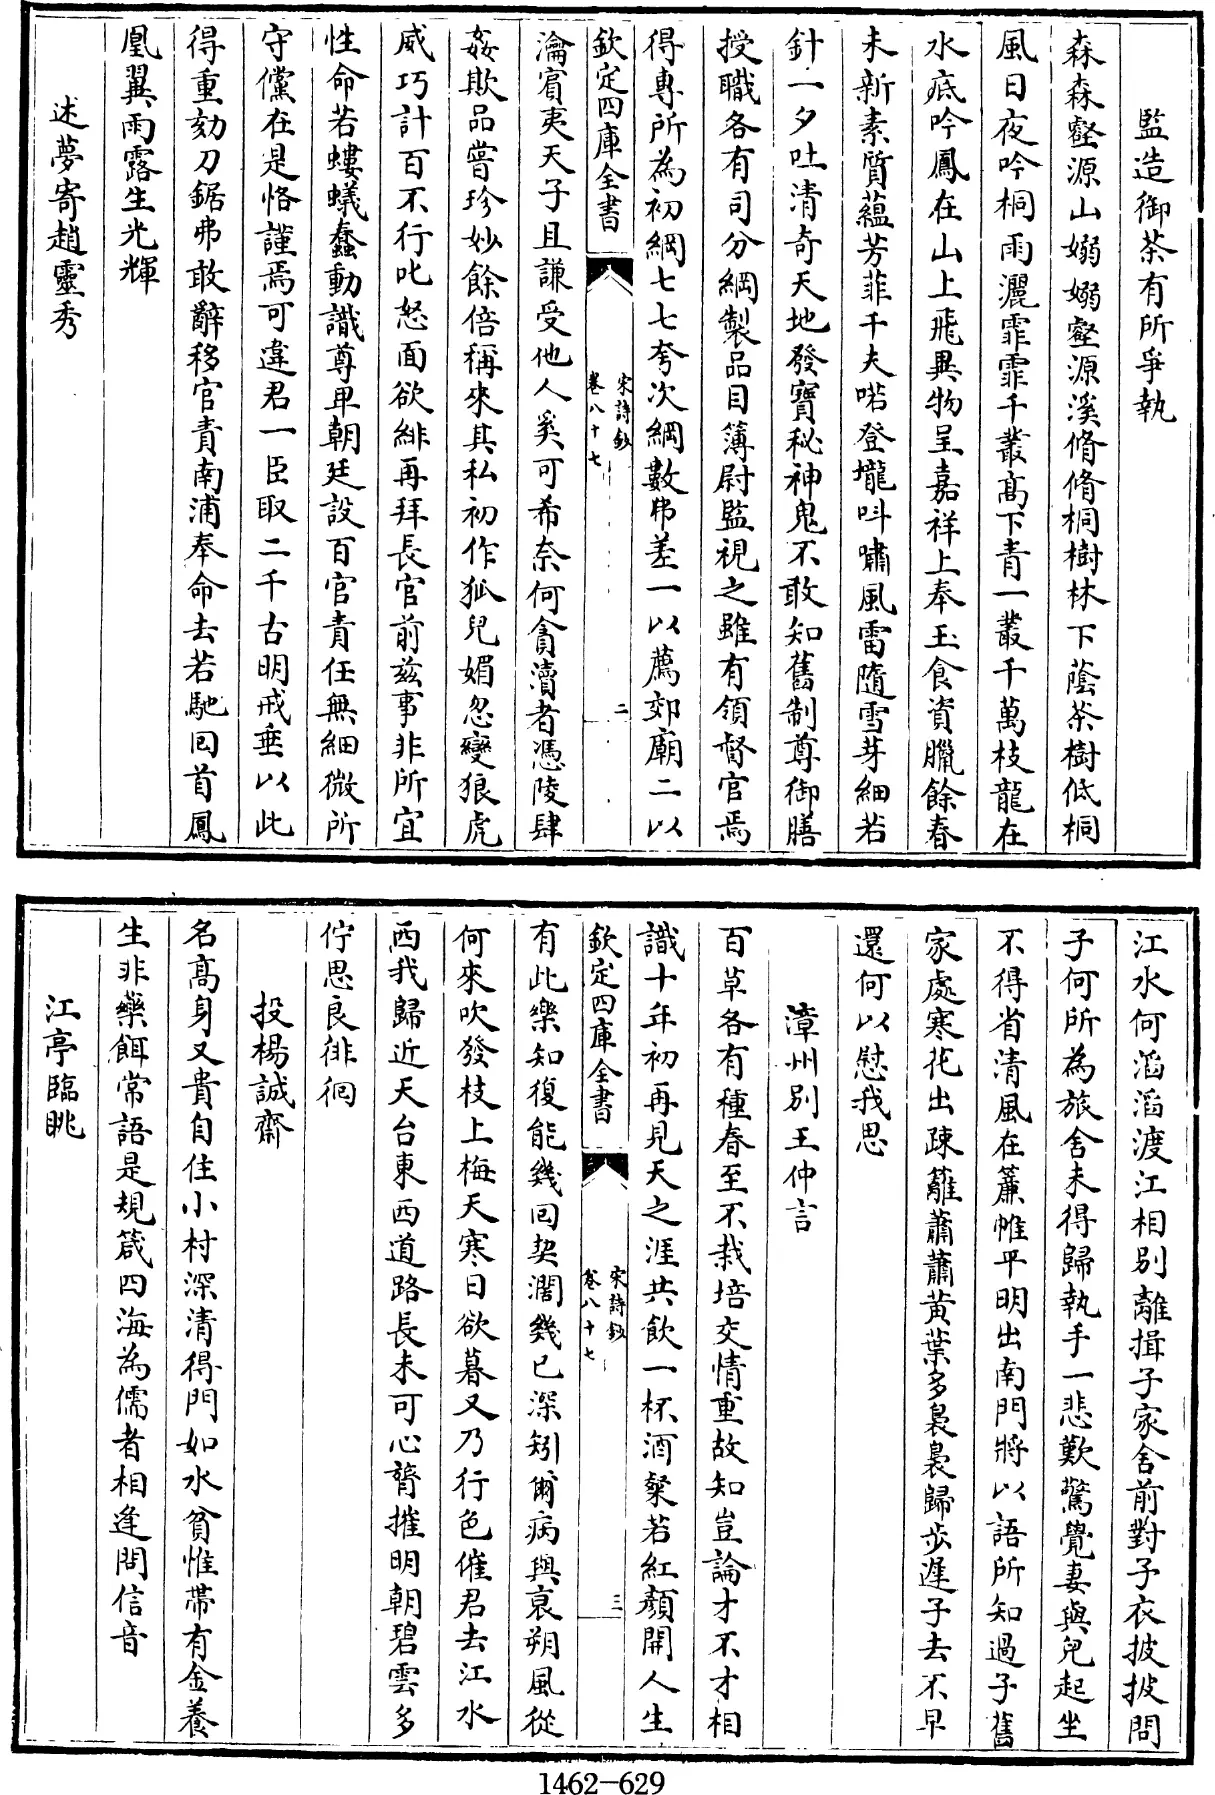 監造御茶有所爭執
森森壑源山嫋嫋壑源溪脩脩桐樹林下蔭茶樹低桐
風日夜吟桐雨灑霏霏千叢髙下青一叢千萬枝龍在
水底吟鳳在山上飛異物呈嘉祥上奉玉食資臘餘春
未新素質蘊芳菲千夫喏登壠呌嘯風雷隨雪芽細若
針一夕吐清奇天地發寶秘神鬼不敢知舊制尊御膳
授職各有司分綱製品目簿尉監視之雖有領督官焉
得專所為初綱七七夸次綱數弗差一以薦郊廟二以
欽定四庫全書
宋詩鈔
卷八十七
二
瀹賓夷天子且謙受他人奚可希奈何貪瀆者憑陵肆
姦欺品嘗珍妙餘倍稱來其私初作狐兒媚忽變狼虎
威巧計百不行叱怒面欲緋再拜長官前兹事非所宜
性命若螻蟻蠢動識尊卑朝廷設百官責任無細微所
守儻在是恪謹焉可違君一臣取二千古明戒垂以此
得重劾刀鋸弗敢辭移官責南浦奉命去若馳囘首鳳
凰翼雨露生光輝
述夢寄趙靈秀
江水何滔滔渡江相别離揖子家舍前對子衣披披問
子何所為旅舍未得歸執手一悲歎驚覺妻與兒起坐
不得省清風在簾帷平明出南門將以語所知過子舊
家處寒花出疎籬蕭蕭黄葉多裊裊歸步遲子去不早
還何以慰我思
漳州别王仲言
百草各有種春至不栽培交情重故知豈論才不才相
識十年初再見天之涯共飲一杯酒粲若紅顏開人生
欽定四庫全書
宋詩鈔
卷八十七
三
有此樂知復能幾囘契濶幾已深矧爾病與衰朔風從
何來吹發枝上梅天寒日欲暮又乃行色催君去江水
西我歸近天台東西道路長未可心膂摧明朝碧雲多
佇思良徘徊
投楊誠齋
名髙身又貴自住小村深清得門如水貧惟帶有金養
生非藥餌常語是規箴四海為儒者相逢問信音
江亭臨眺
1462—629